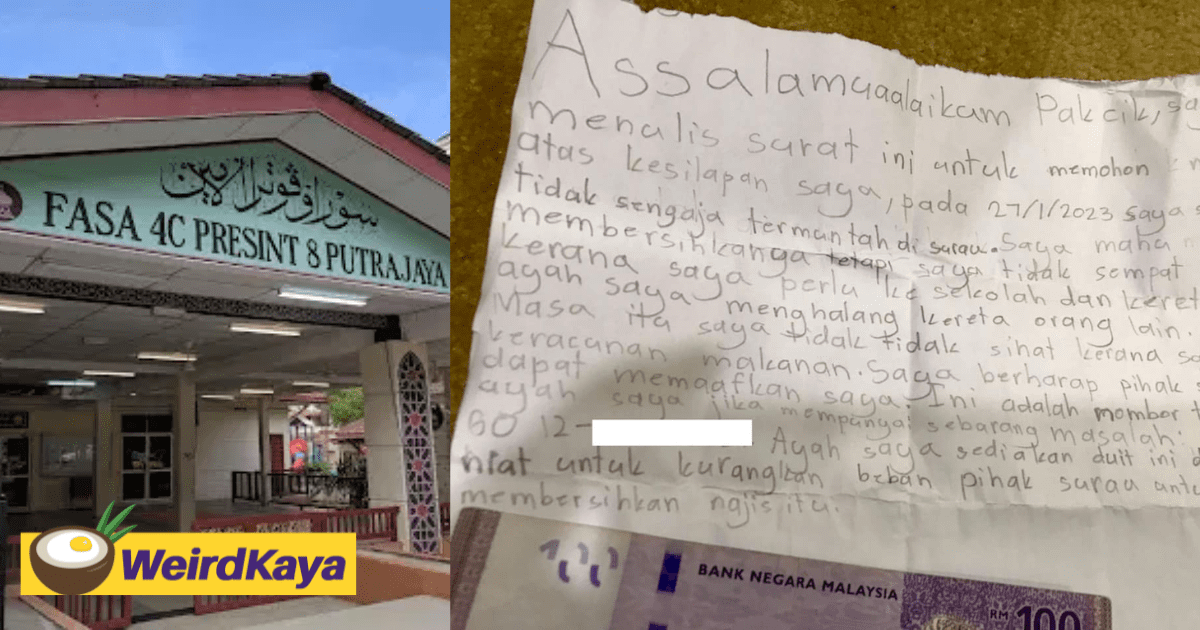 سوراو ڤوترا الامين
FASA 4C PRESINT 8 PUTRAJAYA
WeirdKaya
Assalamuaalaikum Pakcik, sa
menulis surat ini untuk memohon
atas kesilapan saya, pada 27/1/2023 saya
tidak sengaja termuntah di surau. Saya mahu
membersihkanya tetapi saya tidak sempat
kerana saya perlu ke sekolah dan keret
ayah saya menghalang kereta orang lain.
Masa itu saya tidak tidak sihat kerana sa
keracunan makanan. Saya berharap pihak
dapat memaafkan saya. Ini adalah nombor
ayah saya jika mempunyai sebarang masalah:
60 12-
Ayah saya sediakan duit ini d
niat untuk kurangkan beban pihak surau untu
membersihkan najis itu.
BANK NEGARA MALAYSIA
RM 100